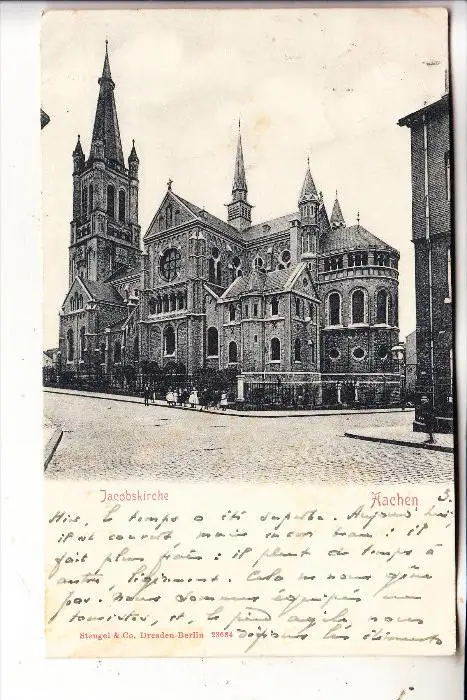 Jacobskirche
Aachen
3.
Hier, le temps a été superbe. Aujourd'hui,
il est couvert mais encor beau : il
fait plus frais : il pleut de temps à
autre, légèrement. Cela ne nous gêne
pas. Nous sommes équipés en
touristes, et, le pied agile nous
défions les éléments
Stengel & Co. Dresden-Berlin 23684